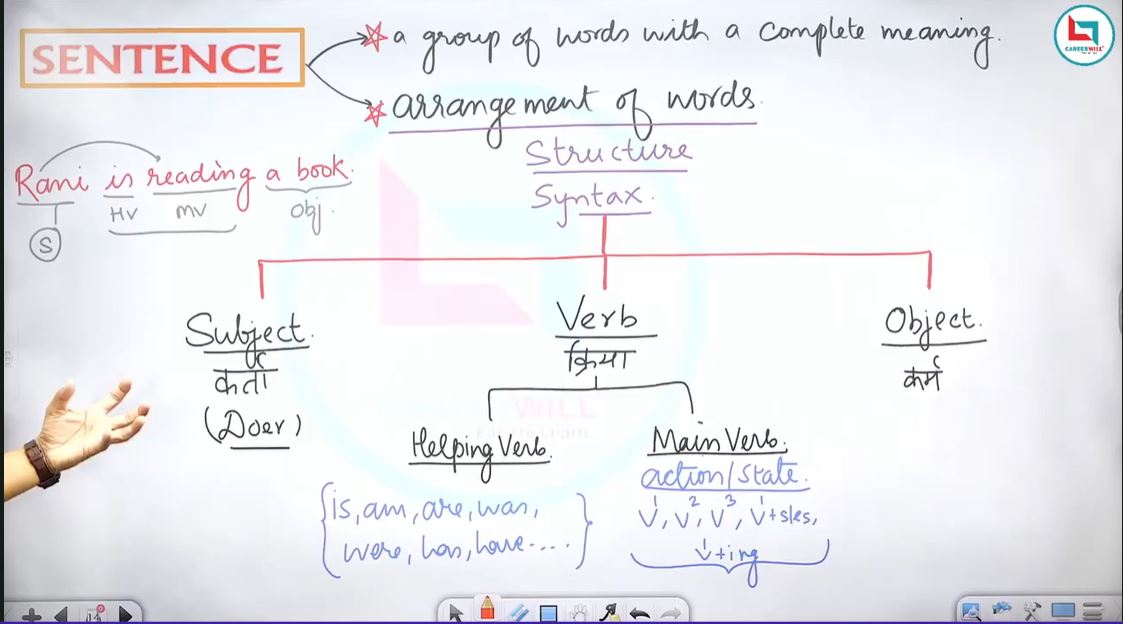 SENTENCE
a group of words with a complete meaning.
CAREERWILL
arrangement of words.
Structure
Syntax.
Rani is reading a book.
HV MV Obj.
S
Subject.
कर्ता
(Doer)
Verb
क्रिया
Object.
कर्म
WILL
Helping Verb.
{is, am, are, was,
were, has, have....}
Main Verb.
action/State.
V¹, V², V³, V¹+s/es,
V¹+ing